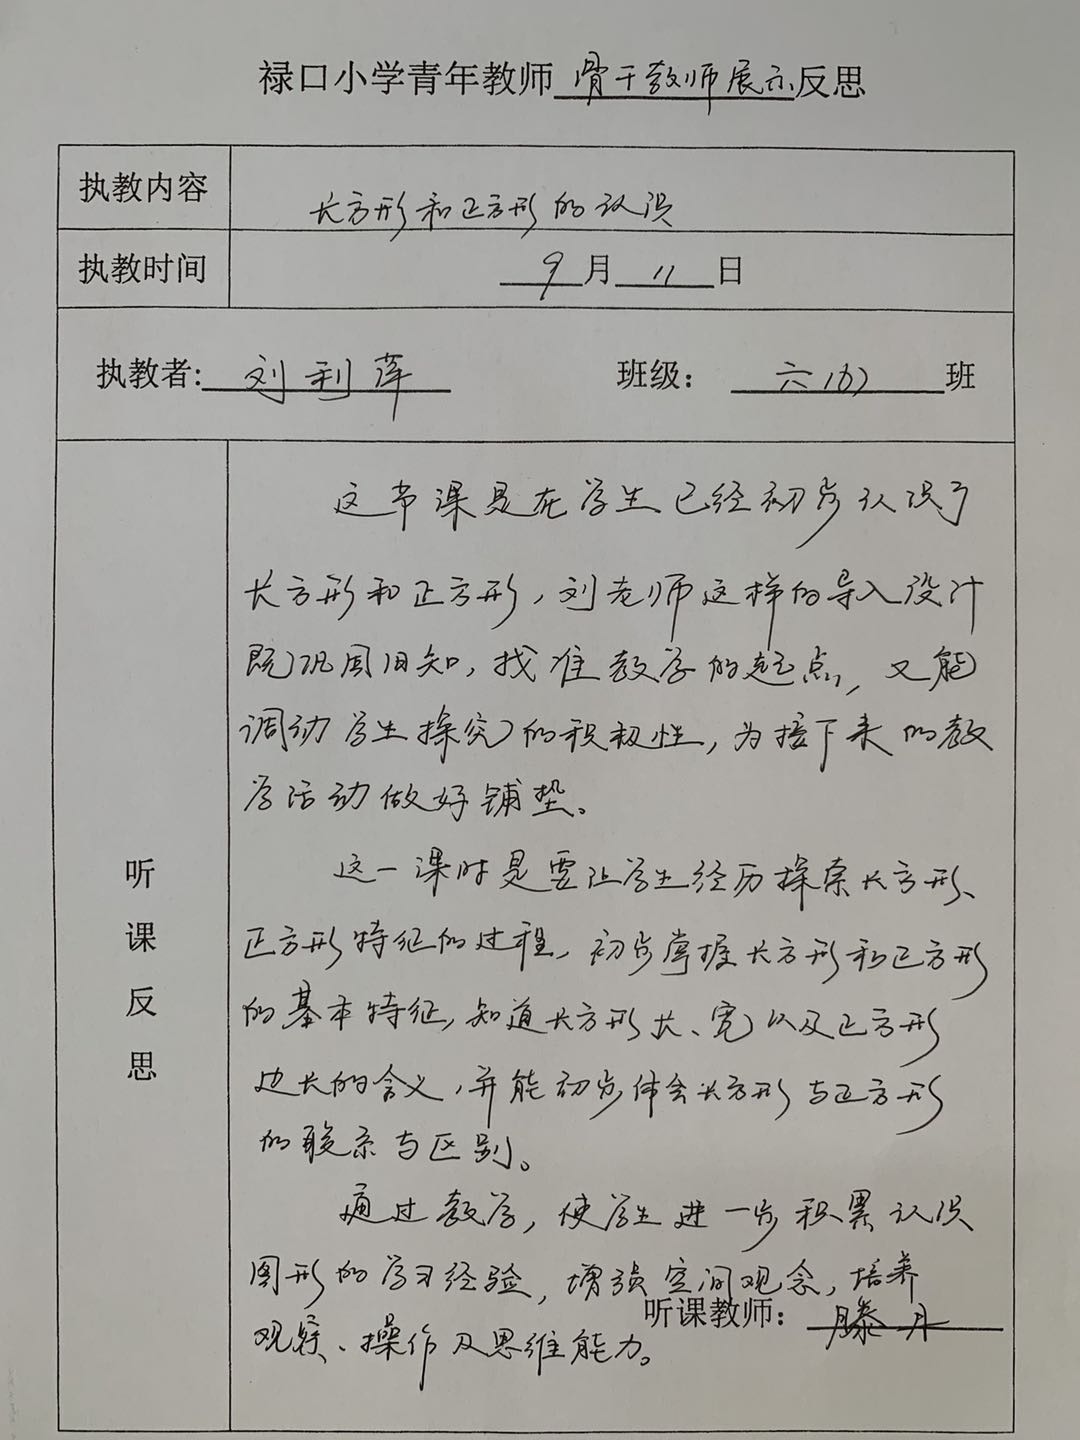 禄口小学青年教师骨干教师展示反思
执教内容 长方形和正方形的认识
执教时间 9月11日
执教者: 刘利萍 班级: 六(力)班
这节课是在学生已经初步认识了
长方形和正方形，刘老师这样的导入设计
既巩固旧知，找准教学的起点，又能
调动学生探究的积极性，为接下来的教
学活动做好铺垫。
这一课时是要让学生经历探索长方形、
正方形特征的过程，初步掌握长方形和正方形
的基本特征，知道长方形长、宽以及正方形
边长的含义，并能初步体会长方形与正方形
的联系与区别。
通过教学，使学生进一步积累认识
图形的学习经验，增强空间观念，培养
观察、操作及思维能力。
听课反思
听课教师: 滕月